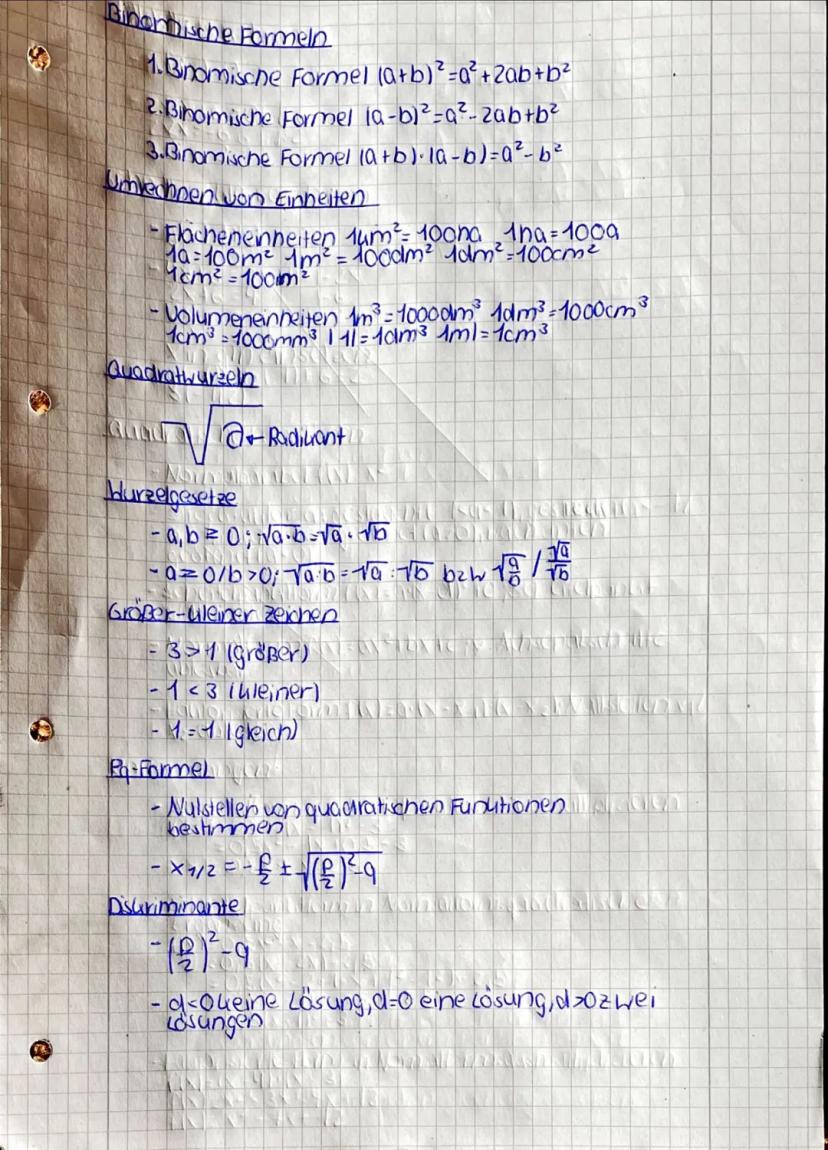 Binomische Formeln
1. Binomische Formel (a+b)²=a²+2ab+b²
2. Binomische Formel (a-b)²=a²-2ab+b²
3. Binomische Formel (a+b)·(a-b)=a²-b²
Umrechnen von Einheiten
- Flächeneinheiten 1km²=100ha 1ha=100a
1a=100m² 1m²=100dm² 1dm²=100cm²
1cm²=100m²
- Volumeneinheiten 1m³=1000dm³ 1dm³=1000cm³
1cm³=1000mm³ | 1l=1dm³ 1ml=1cm³
Quadratwurzeln
√a ← Radikant
Wurzelgesetze
- a,b ≥ 0; √a·b=√a·√b
- a≥0/b>0; √a:b=√a:√b bzw √a/b / √a/√b
Größer-kleiner zeichen
- 3>1 (größer)
- 1<3 (kleiner)
- 1=1 (gleich)
Pq-Formel
- Nulstellen von quadratischen Funktionen
bestimmen
- x1/2 = -p/2 ± √(p/2)²-q
Diskriminante
- (p/2)²-q
- d<0 keine Lösung, d=0 eine Lösung, d>0 zwei
Lösungen